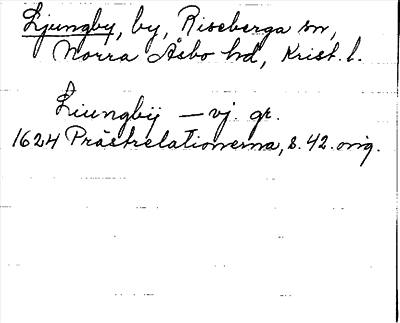 Ljungby, by, Riseberga sn,
Norra Åsbo hd, Krist. l.
Liungbÿ — vj. gr.
1624 Prästrelationerna, s. 42. orig.